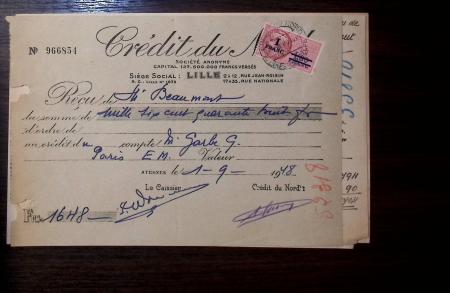 Nº 966854
Crédit du N
SOCIÉTÉ ANONYME
CAPITAL 137.500.000 FRANCS VERSÉS
SIÈGE SOCIAL : LILLE
R.C. LILLE Nº 1075
2 & 12, RUE JEAN ROISIN
17 & 35, RUE NATIONALE
1 FRANC
Reçu de Mr Beaumont
la somme de mille six cent quarante huit frs
d'ordre de
au crédit du compte M Garbe G.
Paris E.M. Valeur
1-9-1948
Le Caissier
Crédit du Nord
1648